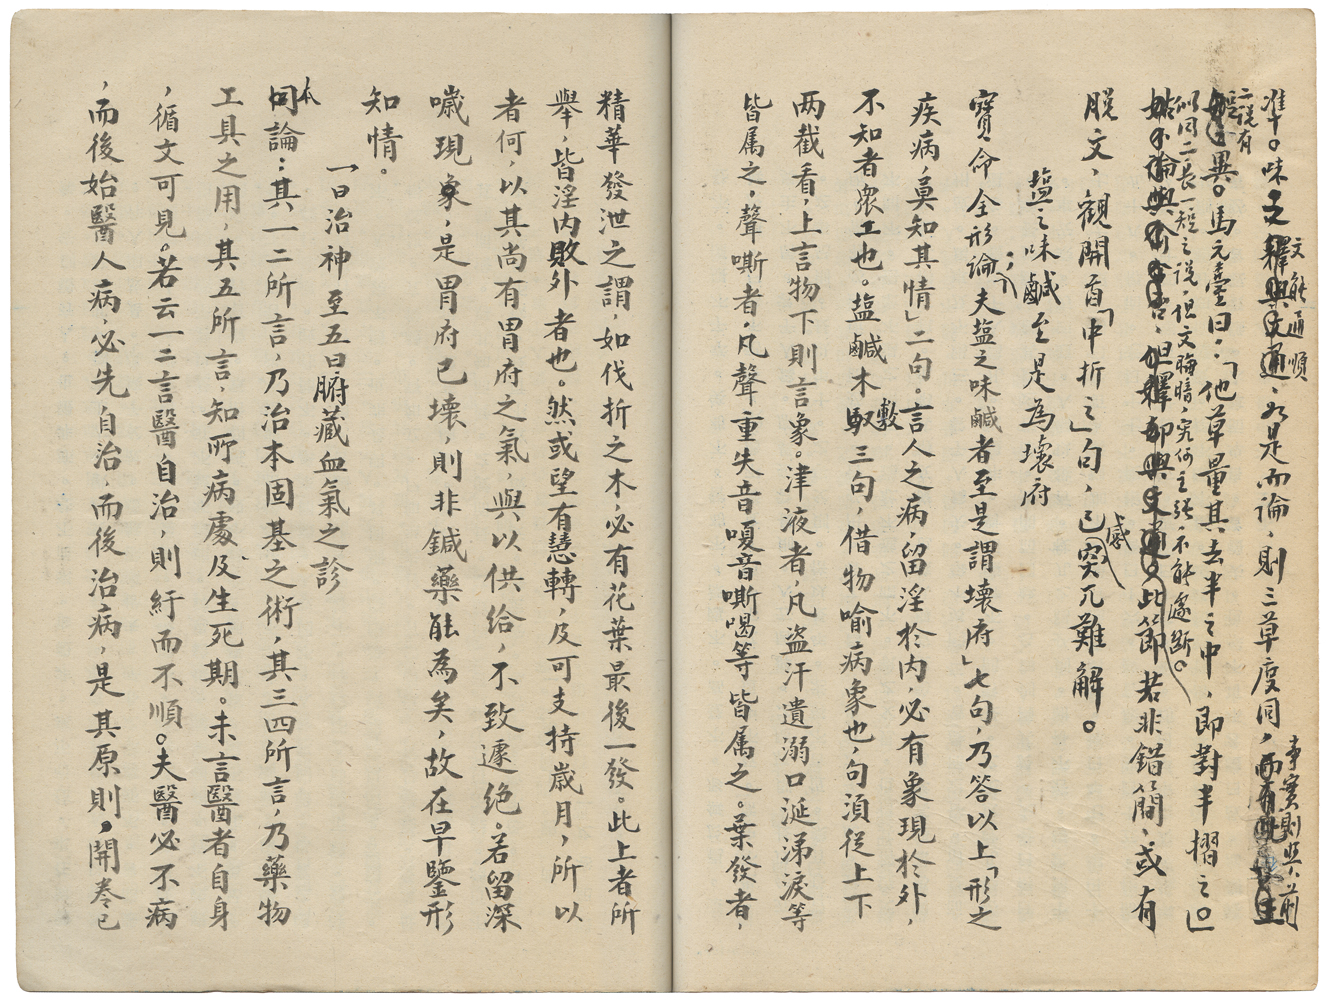 准。味之文能通順、如是而論，則三草度同，事實則與前
二說有
異。馬元臺曰：「他草量其去半之中，即對半摺之」
似同二長一短之說，但文晦暗，究何主張，不能遽斷。
此節若非錯簡，或有
脫文，觀開首「中折之」句，已感突兀難解。
塩之味鹹至是為壞府
寶命全形論：「夫塩之味鹹者至是謂壞府」七句，乃答以上「形之
疾病，莫知其情」二句。言人之病，留淫於內，必有象現於外，
不知者衆工也。塩鹹木敷三句，借物喻病象也，句須從上下
两截看，上言物下則言象。津液者，凡盗汗遺溺口涎涕淚等
皆属之，聲嘶者，凡聲重失音嗄音嘶喝等皆属之。葉發者，
精華發泄之謂，如伐折之木，必有花葉最後一發。此上者所
舉，皆淫内敗外者也。然或望有慧轉，及可支持歲月，所以
者何，以其尚有胃府之氣，與以供給，不致遽绝。若留深
噦現象，是胃府已壞，則非鍼藥能為矣，故在早鑒形
知情。
一曰治神 至五曰腑藏血氣之診
本同論：其一二所言，乃治本固基之術，其三四所言，乃藥物
工具之用，其五所言，知所病處及生死期。未言醫者自身
，循文可見。若云一二言醫自治，則紆而不順。夫醫必不病
，而後始醫人病，必先自治，而後治病，是其原則，開卷已